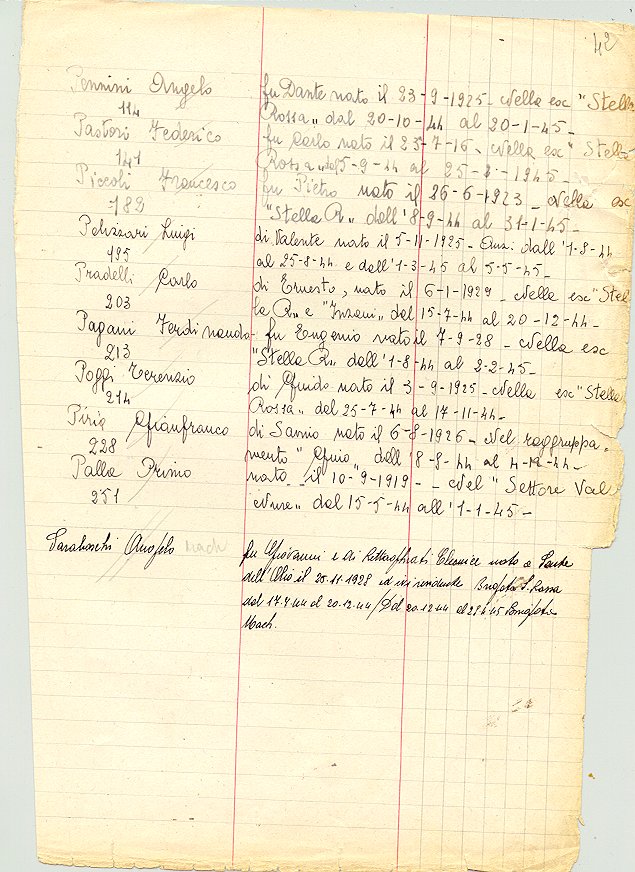 42
Pennini Angelo fu Dante nato il 23-9-1925_ Nella esc "Stella
114 Rossa„ dal 20-10-44 al 20-1-45_
Pastori Federico fu Carlo nato il 23-7-16_ Nella esc "Stella
141 Rossa„ dal 5-9-44 al 25-2-1945_
Piccoli Francesco fu Pietro nato il 26-6-1923_ Nella esc
189 "Stella R„ dall'8-9-44 al 31-1-45_
Pelizzari Luigi di Valente nato il 5-11-1925- dall'1-8-44
195 al 25-8-44 e dall'1-3-45 al 5-5-45_
Pradelli Carlo di Ernesto, nato il 6-1-1929_ Nella esc "Stel
203 la R„ e "Inzani„ dal 15-7-44 al 20-12-44_
Pagani Ferdinando- fu Eugenio nato il 7-9-28_ Nella esc
213 "Stella R„ dall'1-8-44 al 2-2-45_
Poggi Terenzio di Guido nato il 3-9-1925_ Nella esc "Stella
214 Rossa„ dal 25-7-44 al 17-11-44_
Piria Gianfranco di Sannio nato il 6-8-1926_ Nel raggruppa=
228 mento dall'8-8-44 al 4-12-44_
Palla Primo nato il 10-9-1919_ _ Nel "Settore Val
251 Nure„ dal 15-5-44 all'1-1-45_
Angelo Mach fu Giovanni e di nato a Ponte
dell'Olio il 25.11.1928 ed ivi residente Brigata S. Rossa
dal 17.7.44 al 20.12.44/Dal 20.12.44 al 28 4 45 Brigata
Mach.